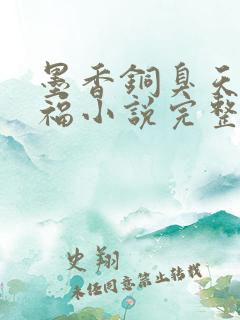 墨香銅臭天
福小說完整
史翔
未经同意禁止转载